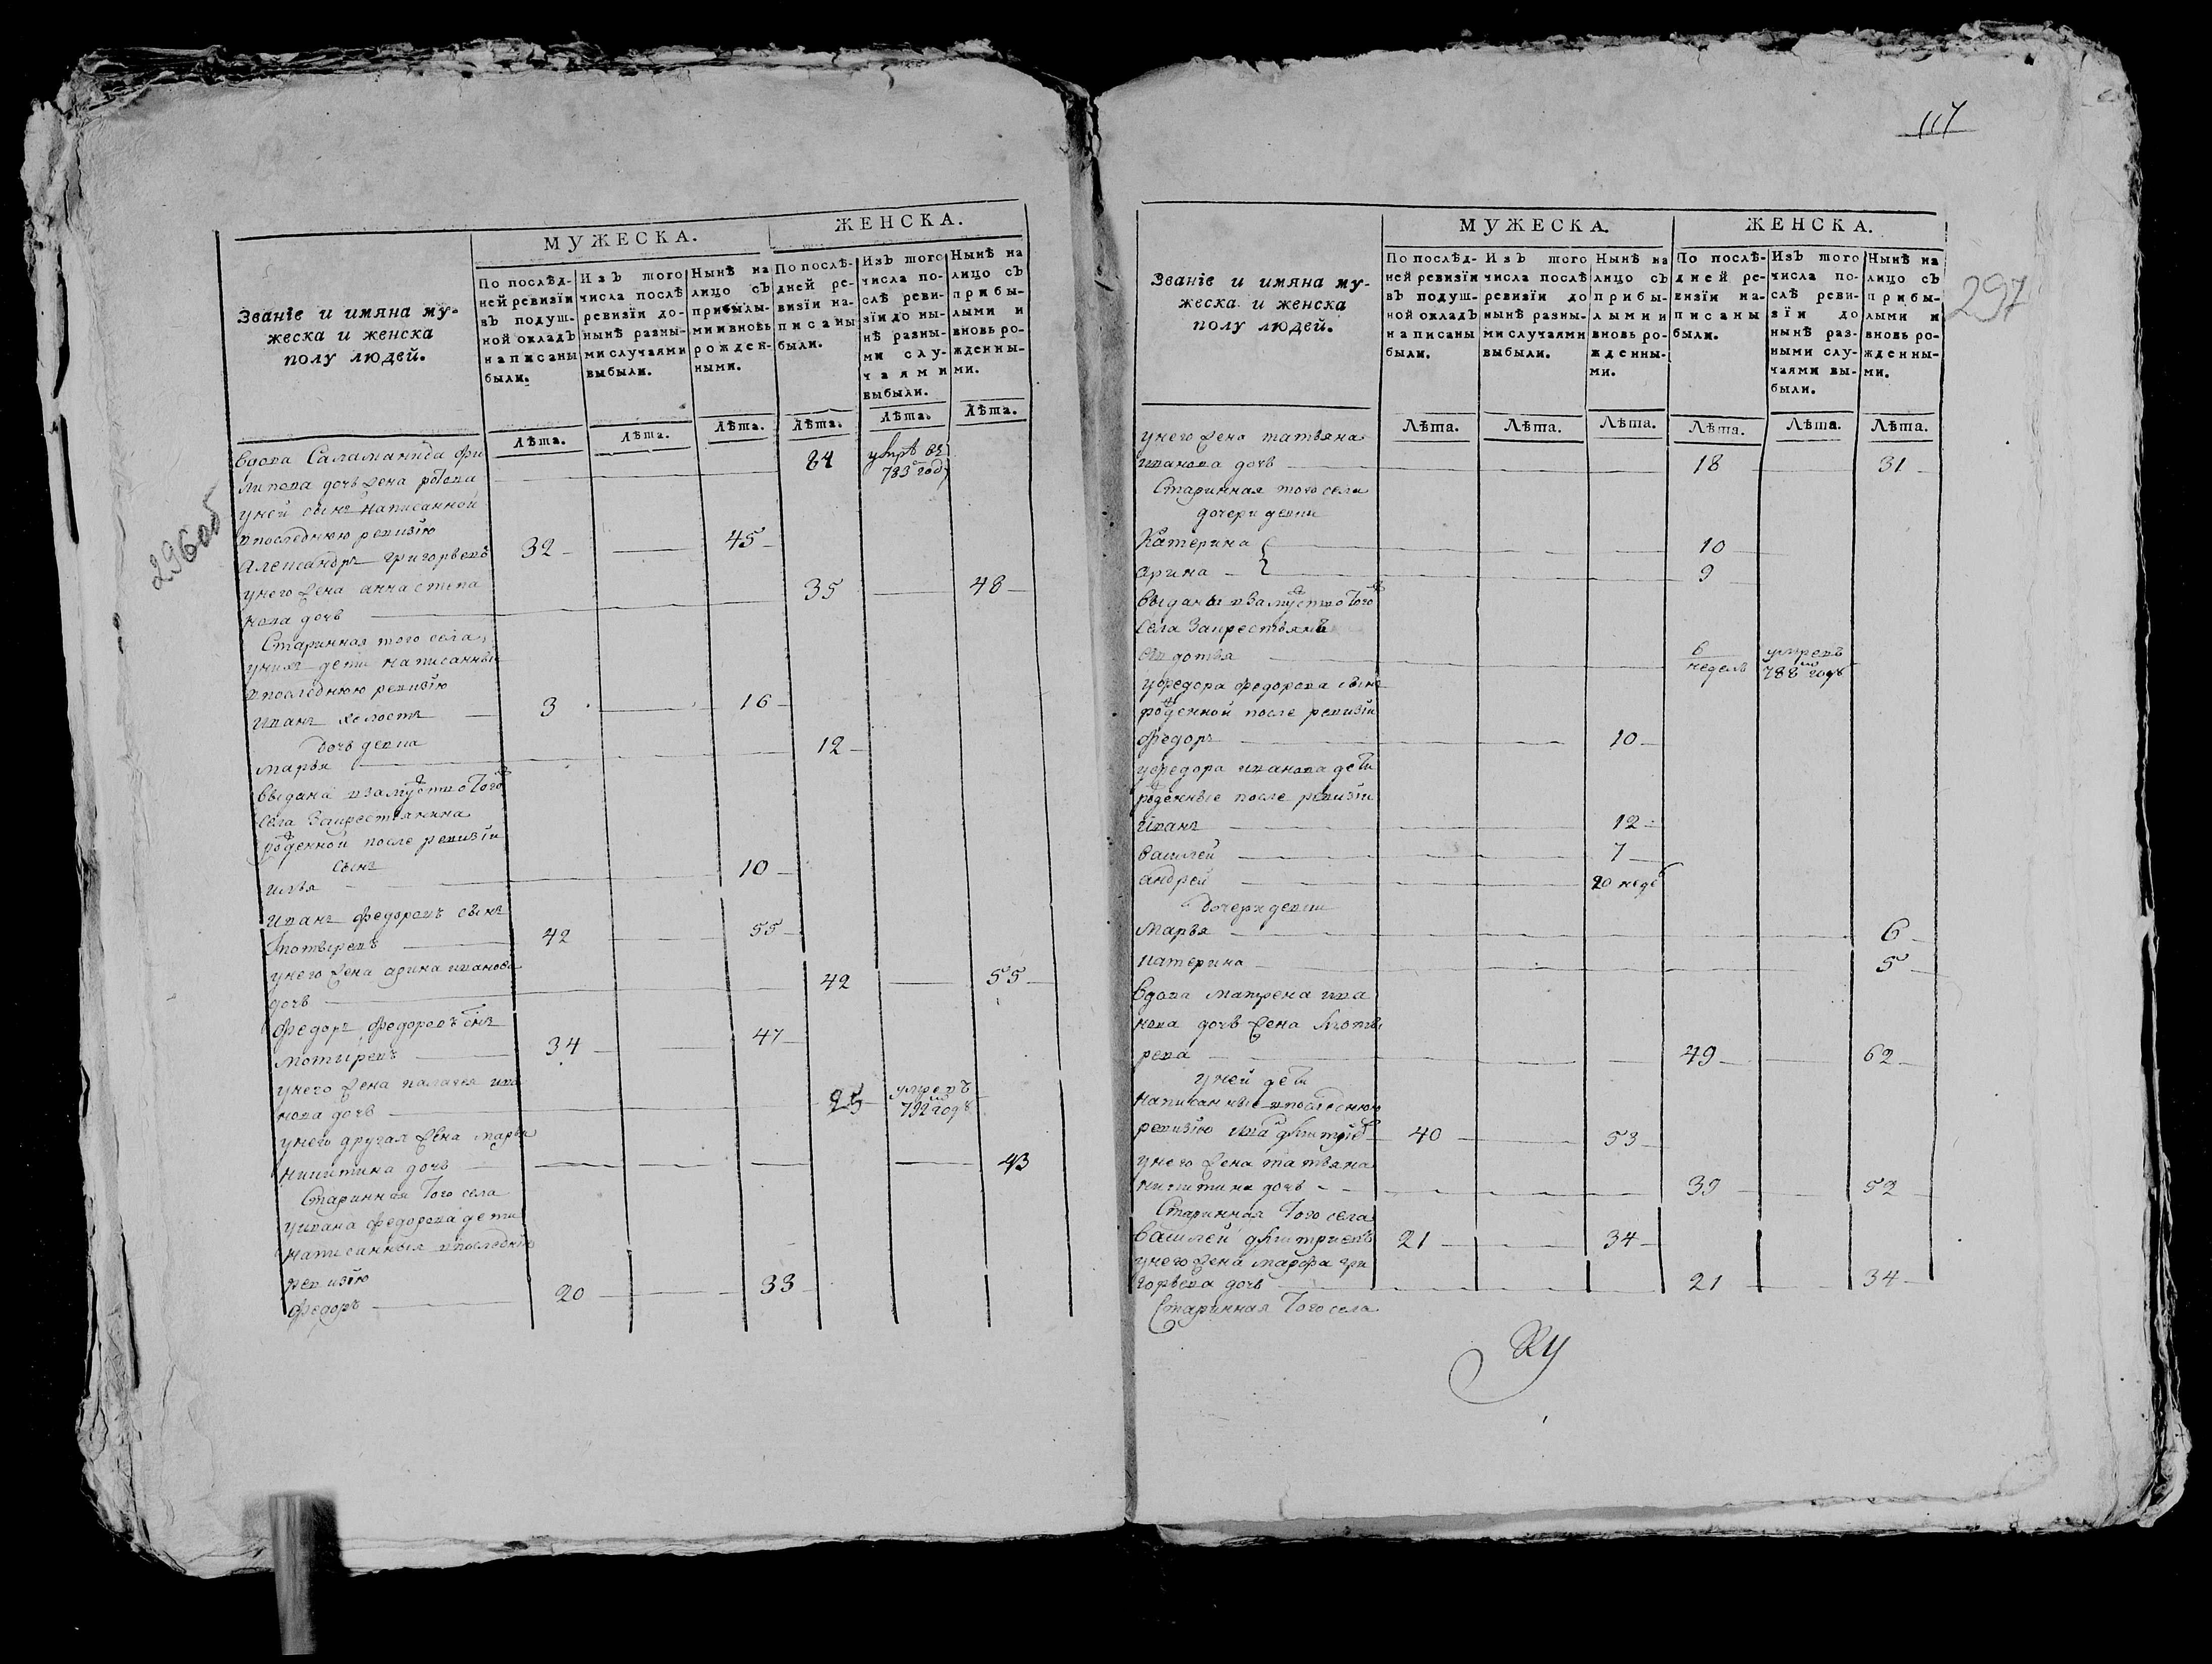 296об
МУЖЕСКА.
ЖЕНСКА.
Званіе и имяна му-
жеска и женска
полу людей.
По послѣд-
ней ревизіи
въ подуш-
ной окладъ
написаны
были.
Изъ того
числа послѣ
ревизіи до-
нынѣ разны-
ми случаями
выбыли.
Нынѣ на
лицо съ
прибылы-
ми и вновь
рожден-
ными.
По послѣ-
дней ре-
визіи на-
писаны
были.
Изъ того
числа по-
слѣ реви-
зіи до ны-
нѣ разны-
ми слу-
чаями
выбыли.
Нынѣ на
лицо съ
прибы-
лыми и
вновь ро-
жденны-
ми.
Лѣта. Лѣта. Лѣта. Лѣта. Лѣта. Лѣта.
вдова Саламанида фи
липова дочь жена 84
783 году
у ней сынъ написанной
в последнюю ревизію
александръ григорьевъ 32 45
у него жена анна степа
нова дочь 35 48
Старинная того села
у нихъ дети написанные
в последнюю ревизію
иванъ холостъ 3 16
дочь девка
марья 12
выдана в замужство того ж
села за крестьянина
рожденной после ревизіи
сынъ
илья 10
иванъ федоровъ сынъ
42 55
у него жена арина иванова
дочь 42 55
федоръ федоровъ снъ
34 47
у него жена палагея ива
нова дочь 25 умре въ
792 году
у него другая жена марья
никитина дочь 43
Старинная того села
у ивана федорова дети
написанныя в последнюю
ревизію
федоръ 20 33
117
297
МУЖЕСКА.
ЖЕНСКА.
Званіе и имяна му-
жеска и женска
полу людей.
По послѣд-
ней ревизіи
въ подуш-
ной окладъ
написаны
были.
Изъ того
числа послѣ
ревизіи до
нынѣ разны-
ми случаями
выбыли.
Нынѣ на
лицо съ
прибы-
лыми и
вновь ро-
жденны-
ми.
По послѣ-
дней ре-
визіи на-
писаны
были.
Изъ того
числа по-
слѣ реви-
зіи до
нынѣ раз-
ными слу-
чаями вы-
были.
Нынѣ на
лицо съ
прибы-
лыми и
вновь ро-
жденны-
ми.
Лѣта. Лѣта. Лѣта. Лѣта. Лѣта. Лѣта.
у него жена татьяна
иванова дочь 18 31
Старинная того села
дочери девки
катерина 10
арина 9
выданы в замужство того ж
села за крестьянъ
6 недель 788 году
у федора федорова сынъ
рожденной после ревизіи
федоръ 10
у федора иванова дети
рожденные после ревизіи
иванъ 12
василей 7
андрей 20 неде
дочери девки
марья 6
катерина 5
вдова матрена ива
нова дочь жена
49 62
у ней дети
написанные в последнюю
ревизію 40 53
у него жена татьяна
никитина дочь 39 52
Старинная того села
василей дмитриевъ 21 34
у него жена марфа гри
горьева дочь 21 34
Старинная того села